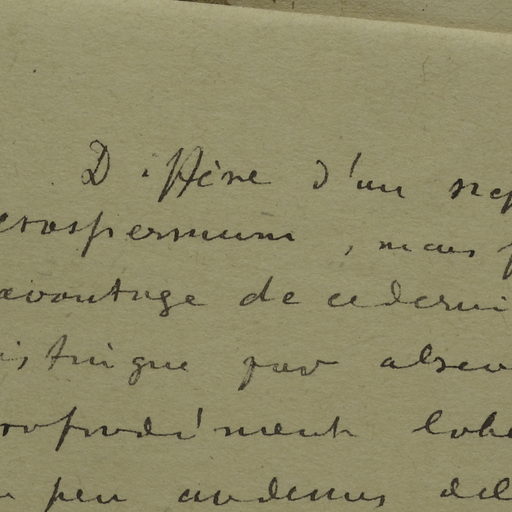 Diffère d'un
erospermum, mais
avantage de ce derni
istingue par absen
rofondément lobé
peu au dessus del